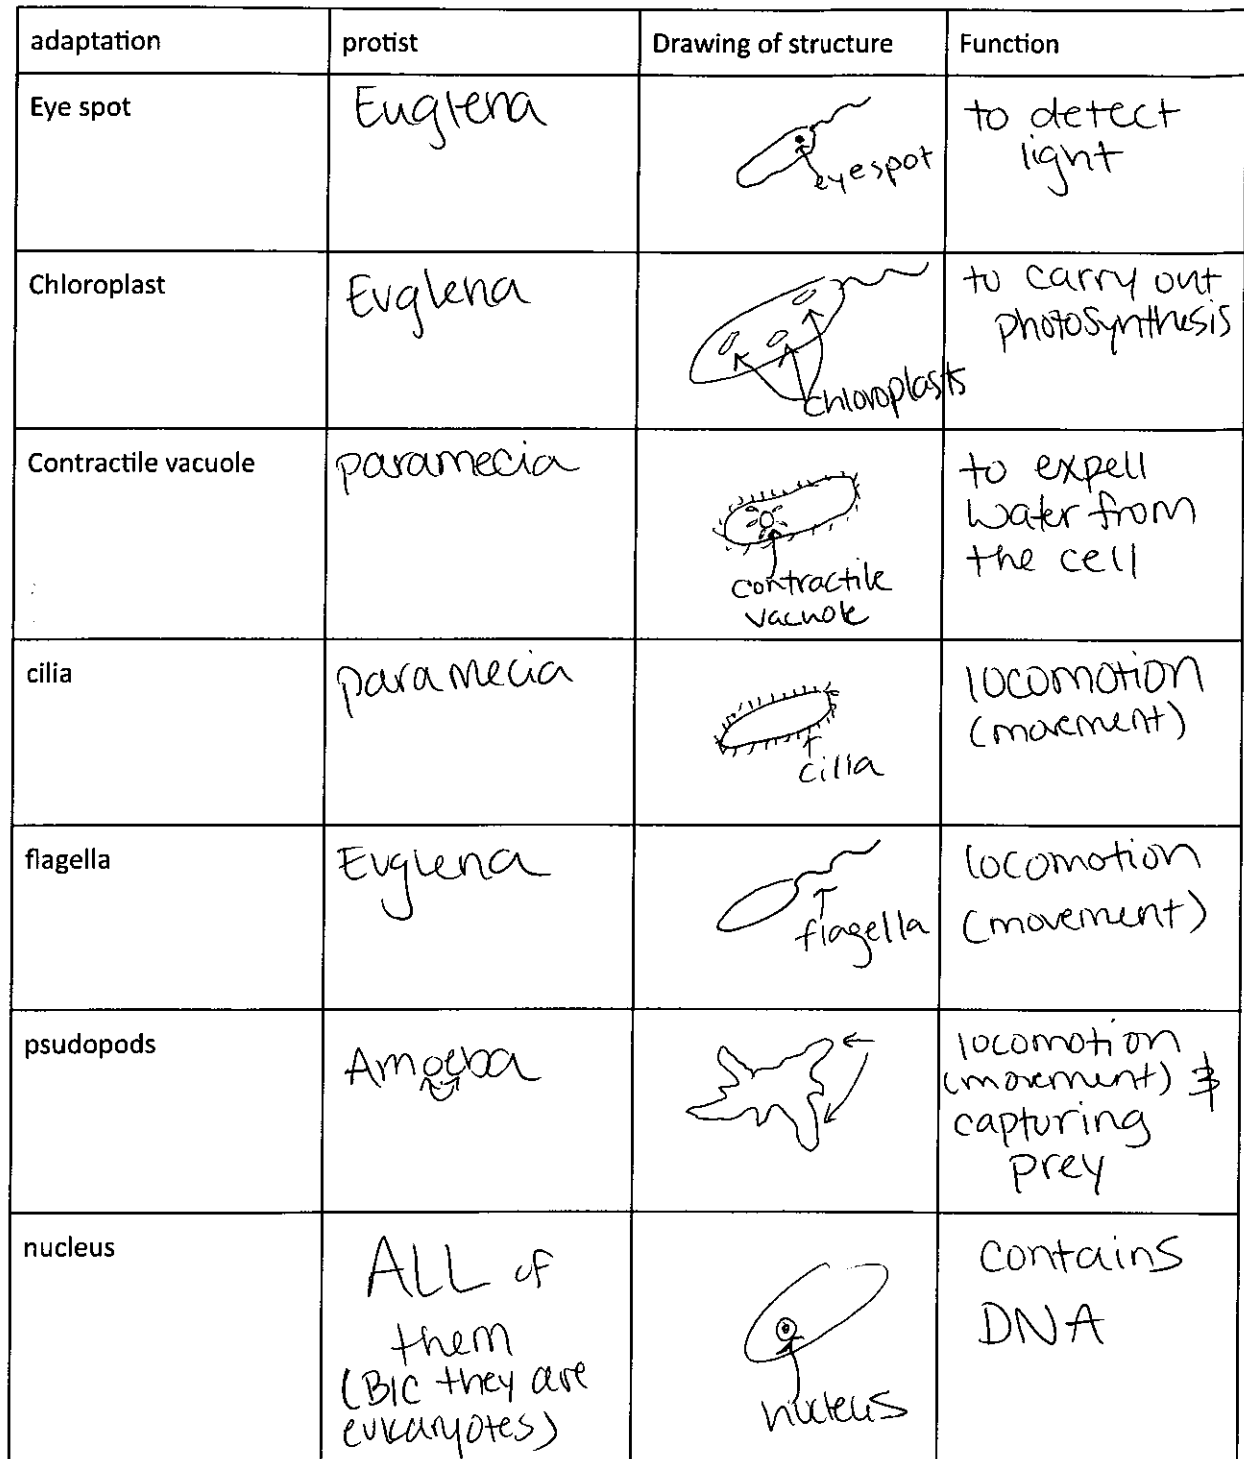 adaptation
protist
Drawing of structure
Function
Eye spot
Euglena
eyespot
to detect
light
Chloroplast
Euglena
chloroplasts
to carry out
photosynthesis
Contractile vacuole
paramecia
contractile
vacuole
to expell
water from
the cell
cilia
paramecia
cilia
locomotion
(movement)
flagella
Euglena
flagella
locomotion
(movement)
psudopods
Amoeba
locomotion
(movement) &
capturing
prey
nucleus
ALL of
them
(B/C they are
eukaryotes)
nucleus
contains
DNA